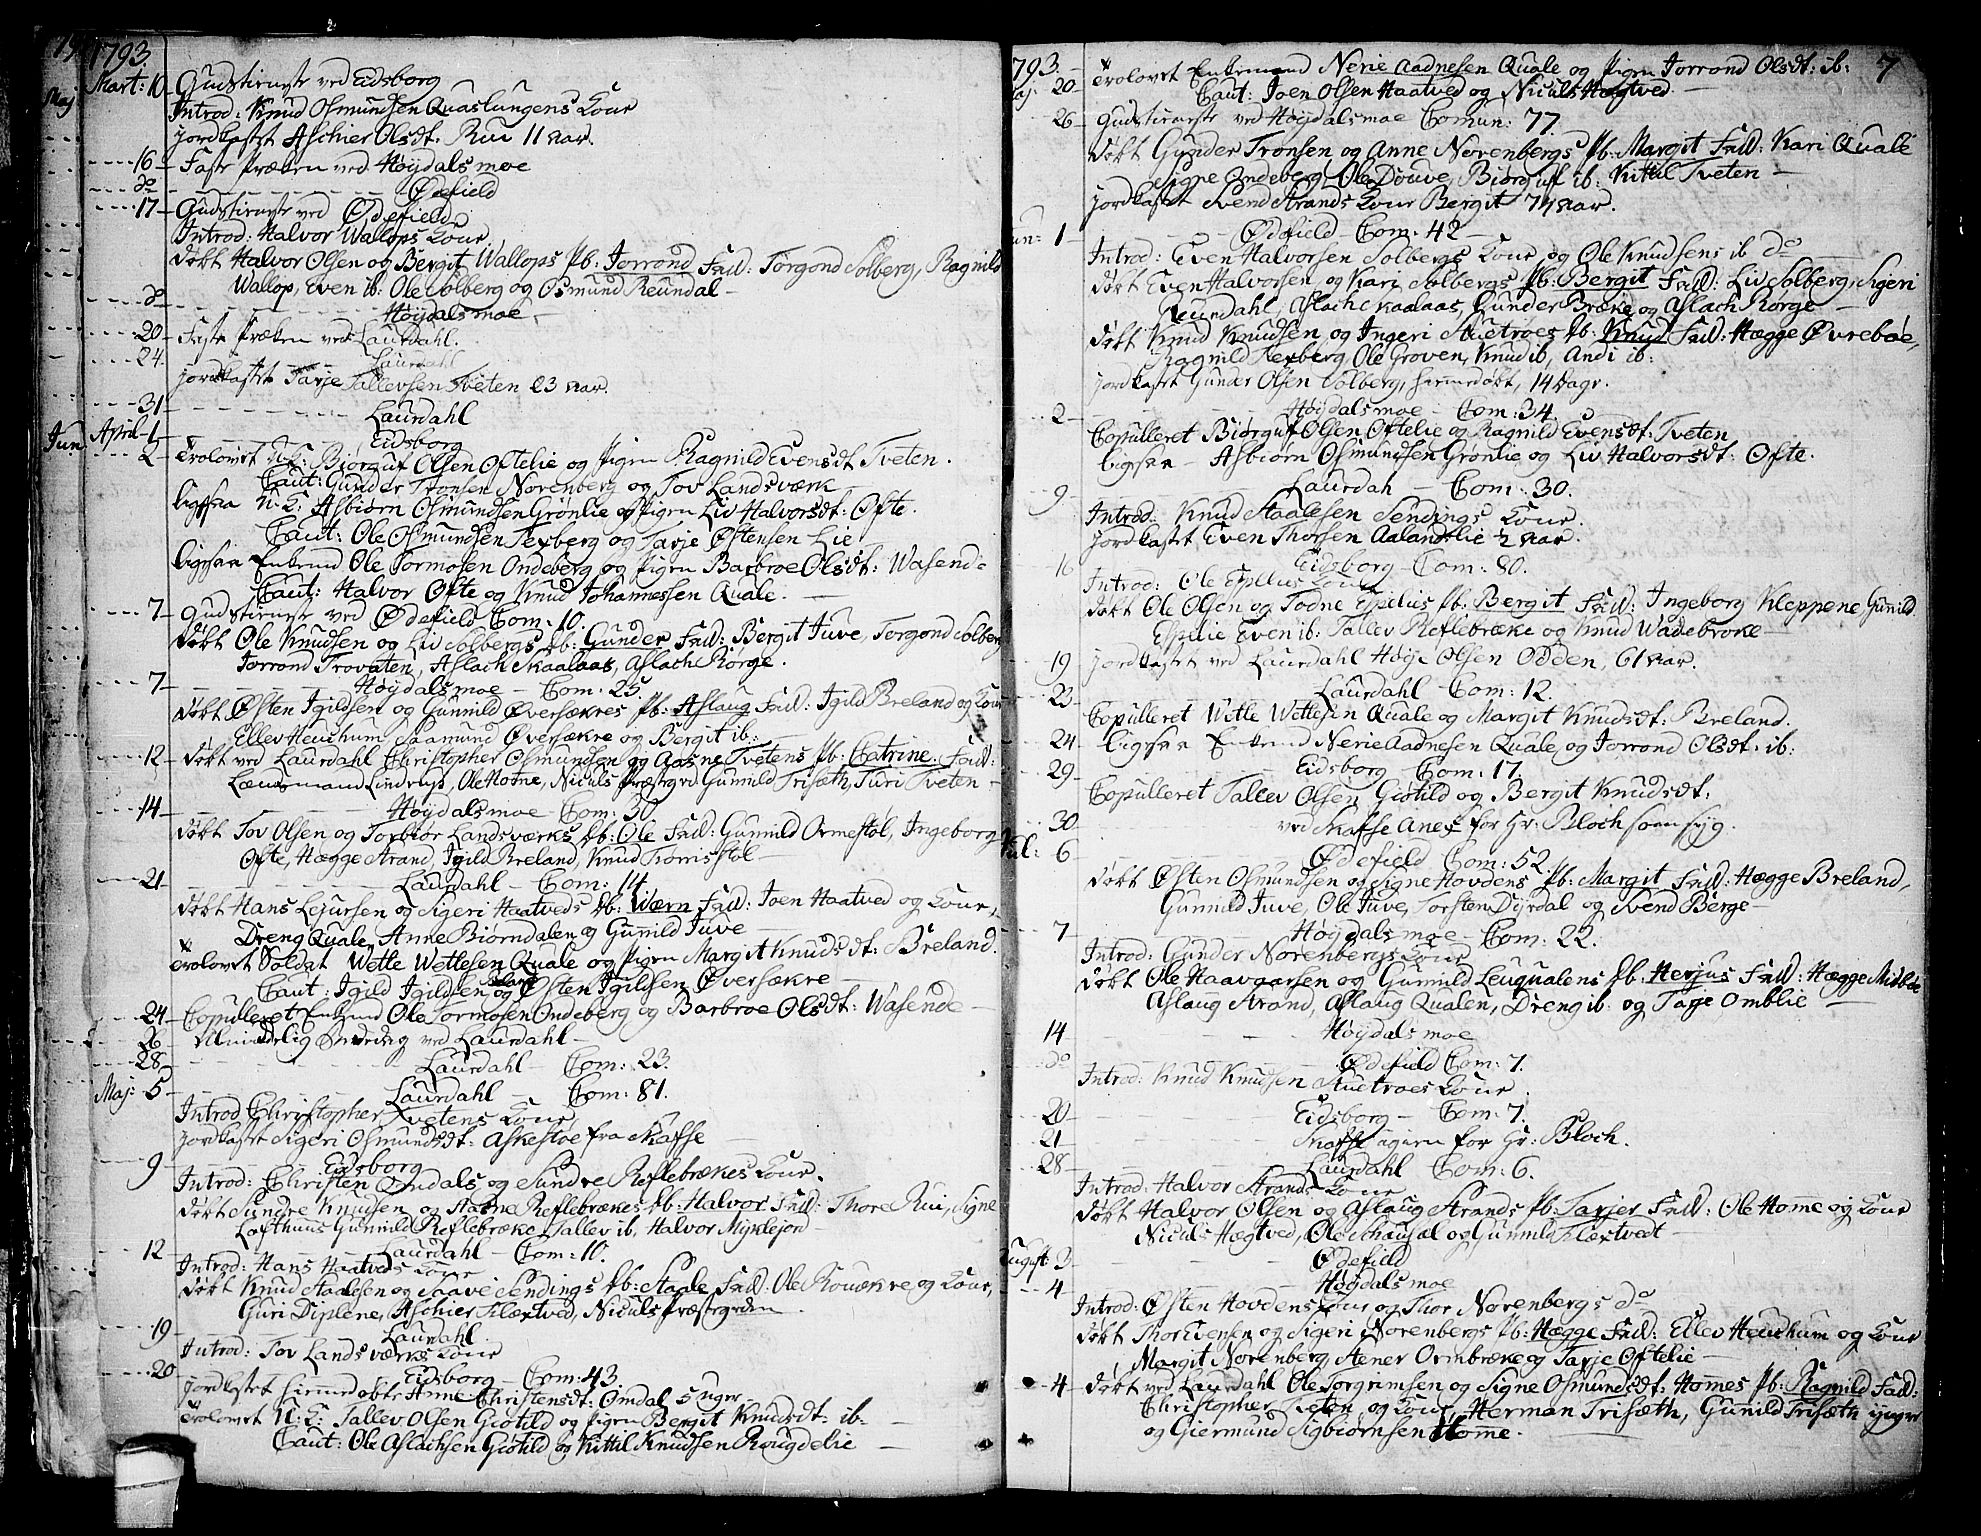 1793.
Mart: 10 Gudstieneste ved Eidsborg
Introd: Knud Osmundsen Quaslungens Kone
jordkastet Aschier Olsdt. Rui 11 aar.
16 Faste Præken ved Høydalsmoe
do Ødefield
17 Gudstieneste ved Ødefield
Introd: Halvor Wallops Kone
døbt Halvor Olsen og Bergit Wallops Pb: Jorrond Fad: Torgond Solberg, Ragnild
Wallop, Even ib: Ole Solberg og Osmund Reundal
do Høydalsmoe
20 Faste Præken ved Laurdahl.
24 Laurdahl
jordkastet Tarje Tallevsen Tveten 23 aar.
31 Laurdahl
April 1 Eidsborg
2 Trolovet U: K: Biørguf Olsen Oftelie og Pigen Ragnild Evensdt Tveten.
Caut: Gunder Tronsen Norenberg og Tov Landsværk
ligesaa U: K: Asbiørn Osmundsen Grønlie og Pigen Liv Halvorsdt: Ofte.
Caut: Ole Osmundsen Texberg og Tarje Østensen Lie
ligesaa Enkemd Ole Tormosen Ondeberg og Pigen Barbroe Olsdt: Wasend
Caut: Halvor Ofte og Knud Johannessen Quale.
7 Gudstieneste ved Ødefield Com: 10.
døbt Ole Knudsen og Liv Solbergs Pb: Gunder Fad: Bergit Juve, Torgond Solberg
Jorrond Trovaten, Aslach Skaalaas, Aslach Rorge.
7 Høydalsmoe - Com: 25.
døbt Østen Igildsen og Gunnild Øversækres Pb: Aslaug Fad: Igild Breland og Kone
Ellev Heuchum Saamund Øversækre og Bergit ib:
12 døbt ved Laurdahl Christopher Osmundsen og Aasne Tvetens Pb: Catrine: Fad:
Lænsmand Lindrup, Ole Home, Niculs Præstgrd Gunnild Trisæth, Turi Tveten
14 Høydalsmoe - Com: 30
døbt Tov Olsen og Torbiør Landsværks Pb: Ole Fad: Gunnild Ormestøl, Ingeborg
Ofte, Hægge Strand, Igild Breland, Knud Tomsstøl
21 Laurdahl - Com: 14.
døbt Hans Lejursen og Sigeri Haatveds Pb: Wærn Fad: Joen Haatved og Kone,
Dreng Quale, Anne Biørndalen og Gunild Juve
Trolovet Soldat Wetle Wetlesen Quale og Pigen Margit Knudsdt: Breland.
Caut: Igild Igildsen og Østen Igildsen Øversækre
24 Copulleret Enkemd Ole Tormosen Ondeberg og Barbroe Olsdt: Wasende
26 Almindelig Bededag ved Laurdahl
28 Laurdahl - Com: 23.
Maj: 5 Laurdahl - Com: 81.
Introd Christopher Tvetens Kone
jordkastet Sigeri Osmundsdt: Askestoe fra Skafse
9 Eidsborg
Introd: Christen Omdals og Sundre Reflebrækes Kone.
døbt Sundre Knudsen og Aasne Reflebrækes Pb: Halvor Fad: Thore Rui, Signe
Lofthuus Gunnild Reflebræke, Tallev ib, Halvor Myklejord
12 Laurdahl - Com: 10.
Introd: Hans Haatveds Kone
døbt Knud Staalesen og Saave Sendings Pb: Staale Fad: Ole Rouækre og Kone,
Guri Diplene, Aschier Flextved, Niculs Præstgrden.
19 Laurdahl.
Introd: Tov Landsværks Kone
20 Eidsborg - Com: 43.
jordkastet hiemmedøbte Anne Christensdt: Omdal 5 uger
Trolovet U: K: Tallev Olsen Giøtild og Pigen Bergit Knudsdt: ib:
Caut: Ole Aslachsen Giøtild og Kittil Knudsen Rougdelie
1793. 7
Maj: 20 Trolovet Enkemand Nerie Aadnesen Quale og Pigen Jorrond Olsdt: ib:
Caut: Joen Olsen Haatved og Niculs Hægtved
26 Gudstieneste ved Høydalsmoe Comun: 77.
døbt Gunder Tronsen og Anne Norenbergs Pb: Margit Fad: Kari Quale
Signe Ondeberg, Ole Douve, Biørguf ib: Kittil Tveten
jordkastet Svend Strands Kone Bergit 77 aar.
Jun: 1 Ødefield - Com: 42
Introd: Even Halvorsen Solbergs Kone, og Ole Knudsens ib do
døbt Even Halvorsen, og Kari Solbergs Pb: Bergit Fad: Liv Solberg, Sigeri
Reundahl, Aslach Skaalaas, Gunder Bræke og Aslach Rorge
døbt Knud Knudsen og Ingeri Stuetroes Pb: Knud Fad: Hægge Øvrebøe,
Ragnild Texberg Ole Groven, Knud ib, Andi ib:
jordkastet Gunder Olsen Solberg, hiemmedøbt, 14 dage.
2 Høydalsmoe - Com: 34.
Copulleret Biørguf Olsen Oftelie og Ragnild Evensdt: Tveten
ligesaa - Asbiørn Osmundsen Grønlie og Liv Halvorsdt: Ofte.
9 Laurdah - Com: 30.
Introd: Knud Staalesen Sendings Kone.
jordkastet Even Thorsen Aalandslie ½ aar.
16 Eidsborg - Com: 80.
Introd: Ole Espelius Kone
døbt Ole Olsen og Todne Espelius Pb: Bergit Fad: Ingeborg Kleppene Gunild
Espelie Even ib: Tallev Reflebræke og Knud Wadebroke
19 jordkastet ved Laurdahl Høye Olsen Odden, 61 aar.
23 Laurdahl - Com: 12.
Copulleret Wetle Wetlesen Quale og Margit Knudsdt: Breland.
24 ligesaa Enkemd Nerie Aadnesen Quale, og Jorrond Olsdt: ib:
29 Eidsborg - Com: 17.
Copulleret Tallev Olsen Giøtild og Bergit Knudsdt:
30 ved Skafse Anex for Hr: Bloch som syg.
Jul: 6 Ødefield Com: 52
døbt Østen Osmundsen og Signe Hovdens Pb: Margit Fad: Hægge Breland,
Gunnild Juve, Ole Juve, Torsten Dyrdal og Svend Berge
7 Høydalsmoe - Com: 22.
Introd: Gunder Norenbergs Kone
døbt Ole Haavaarsen og Gunnild Leuqualens Pb: Herjus Fad: Hægge Midbøe
Aslaug Strand, Aslaug Qualen, Dreng ib: og Tarje Omblie
14 Høydalsmoe
do Ødefield Com: 7.
Introd: Knud Knudsen Stuetroes Kone.
20 Eidsborg - Com: 7.
21 Skafse igien for Hr: Bloch.
28 Laurdahl Com: 6.
Introd: Halvor Strands Kone
døbt Halvor Olsen og Aslaug Strands Pb: Tarjer Fad: Ole Home og Kone
Niculs Hægtved, Ole Schausæl og Gunnild Flextvedt
August 3 Ødefield
4 Høydalsmoe
Introd: Østen Hovdens Kone og Thor Norenbergs do
døbt Thor Evensen og Sigeri Norenbergs Pb: Hægge Fad: Ellev Heuchum og Kone
Margit Norenberg, Stener Ormbræke og Tarje Oftelie
4 døbt ved Laurdahl Ole Torgrimsen og Signe Osmundsdt: Homes Pb: Ragnild Fad:
Christopher Tveten og Kone, Herman Trisæth, Gunild Trisæth yngre
og Giermund Sigbiørnsen Home.